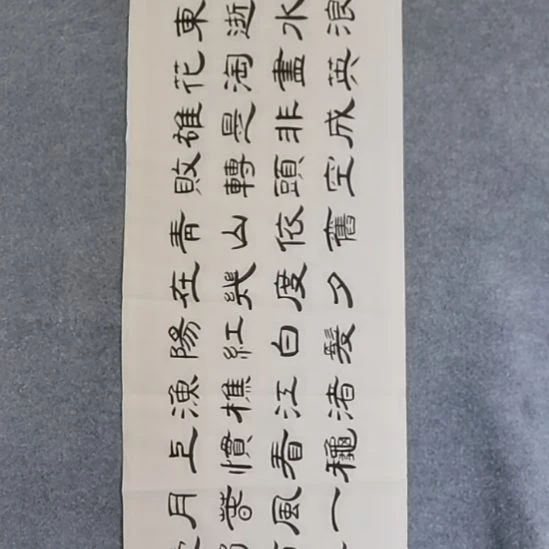 東逝水浪
花淘盡英
雄是非成
敗轉頭空
青山依舊
在幾度夕
陽紅白髮
漁樵江渚
上慣看龝
月春風一